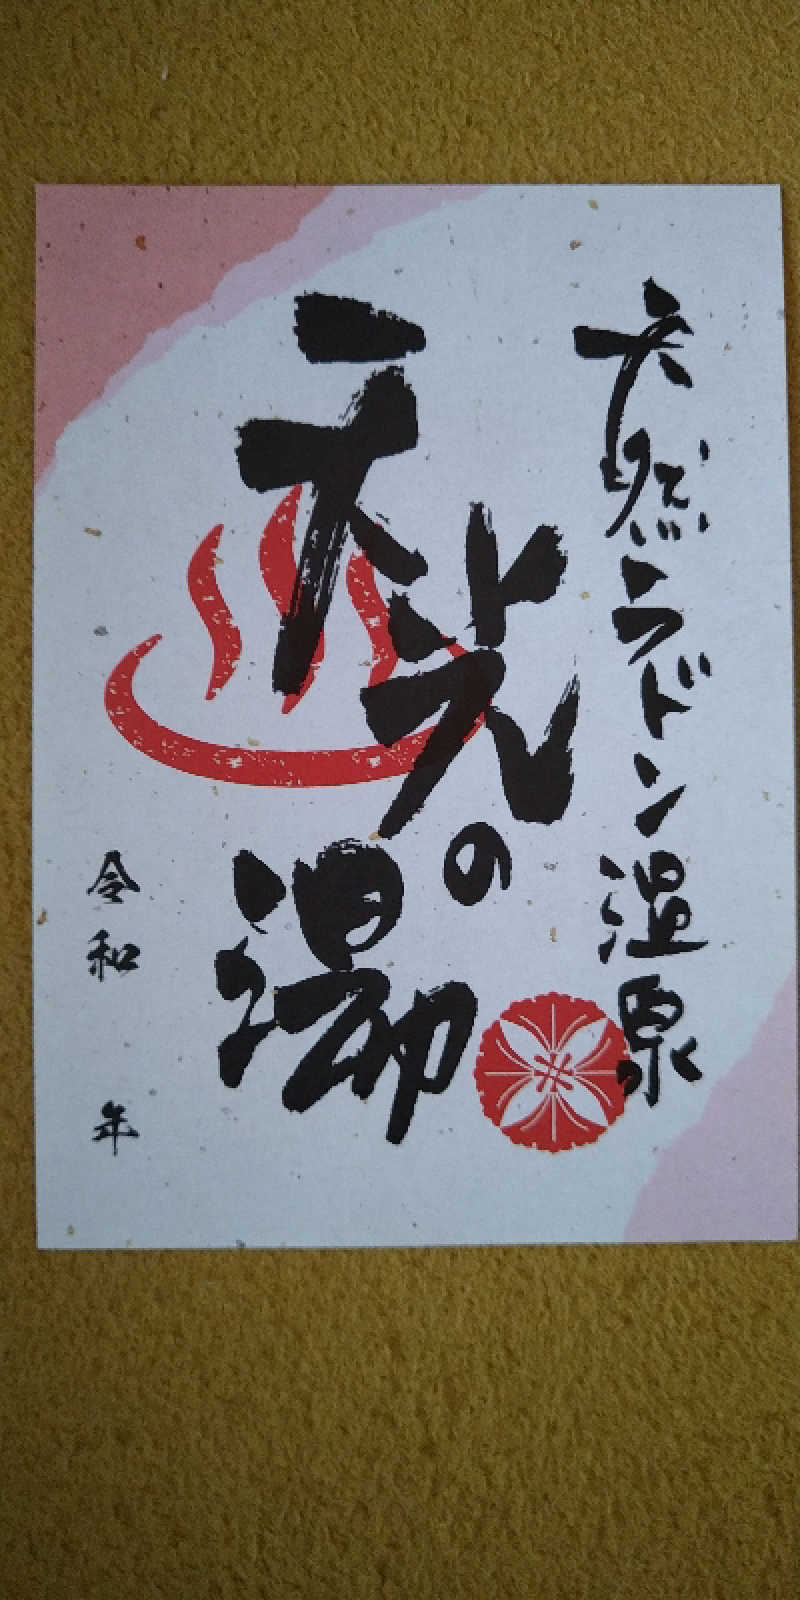 天然ラドン温泉
天光の湯
令和 年